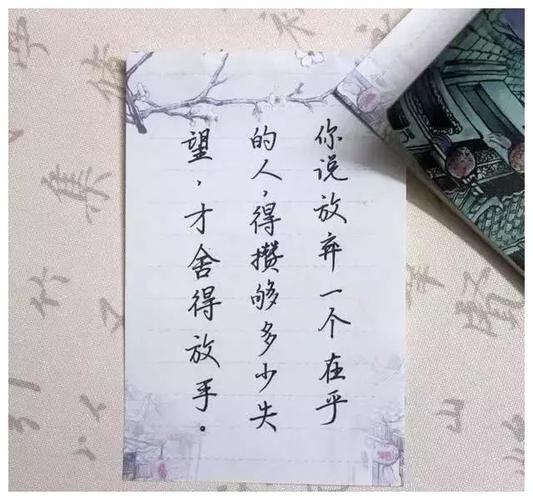 你说放弃一个在乎
的人,得攒够多少失
望,才舍得放手。